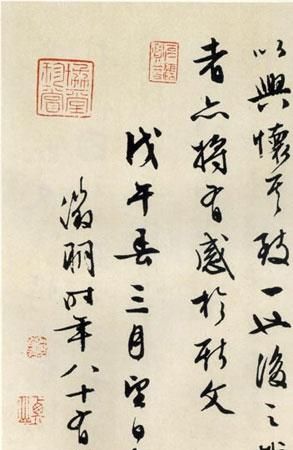 以興懷其致一也後之
者亦將有感於斯文
戊午春三月望日
徵明時年八十有